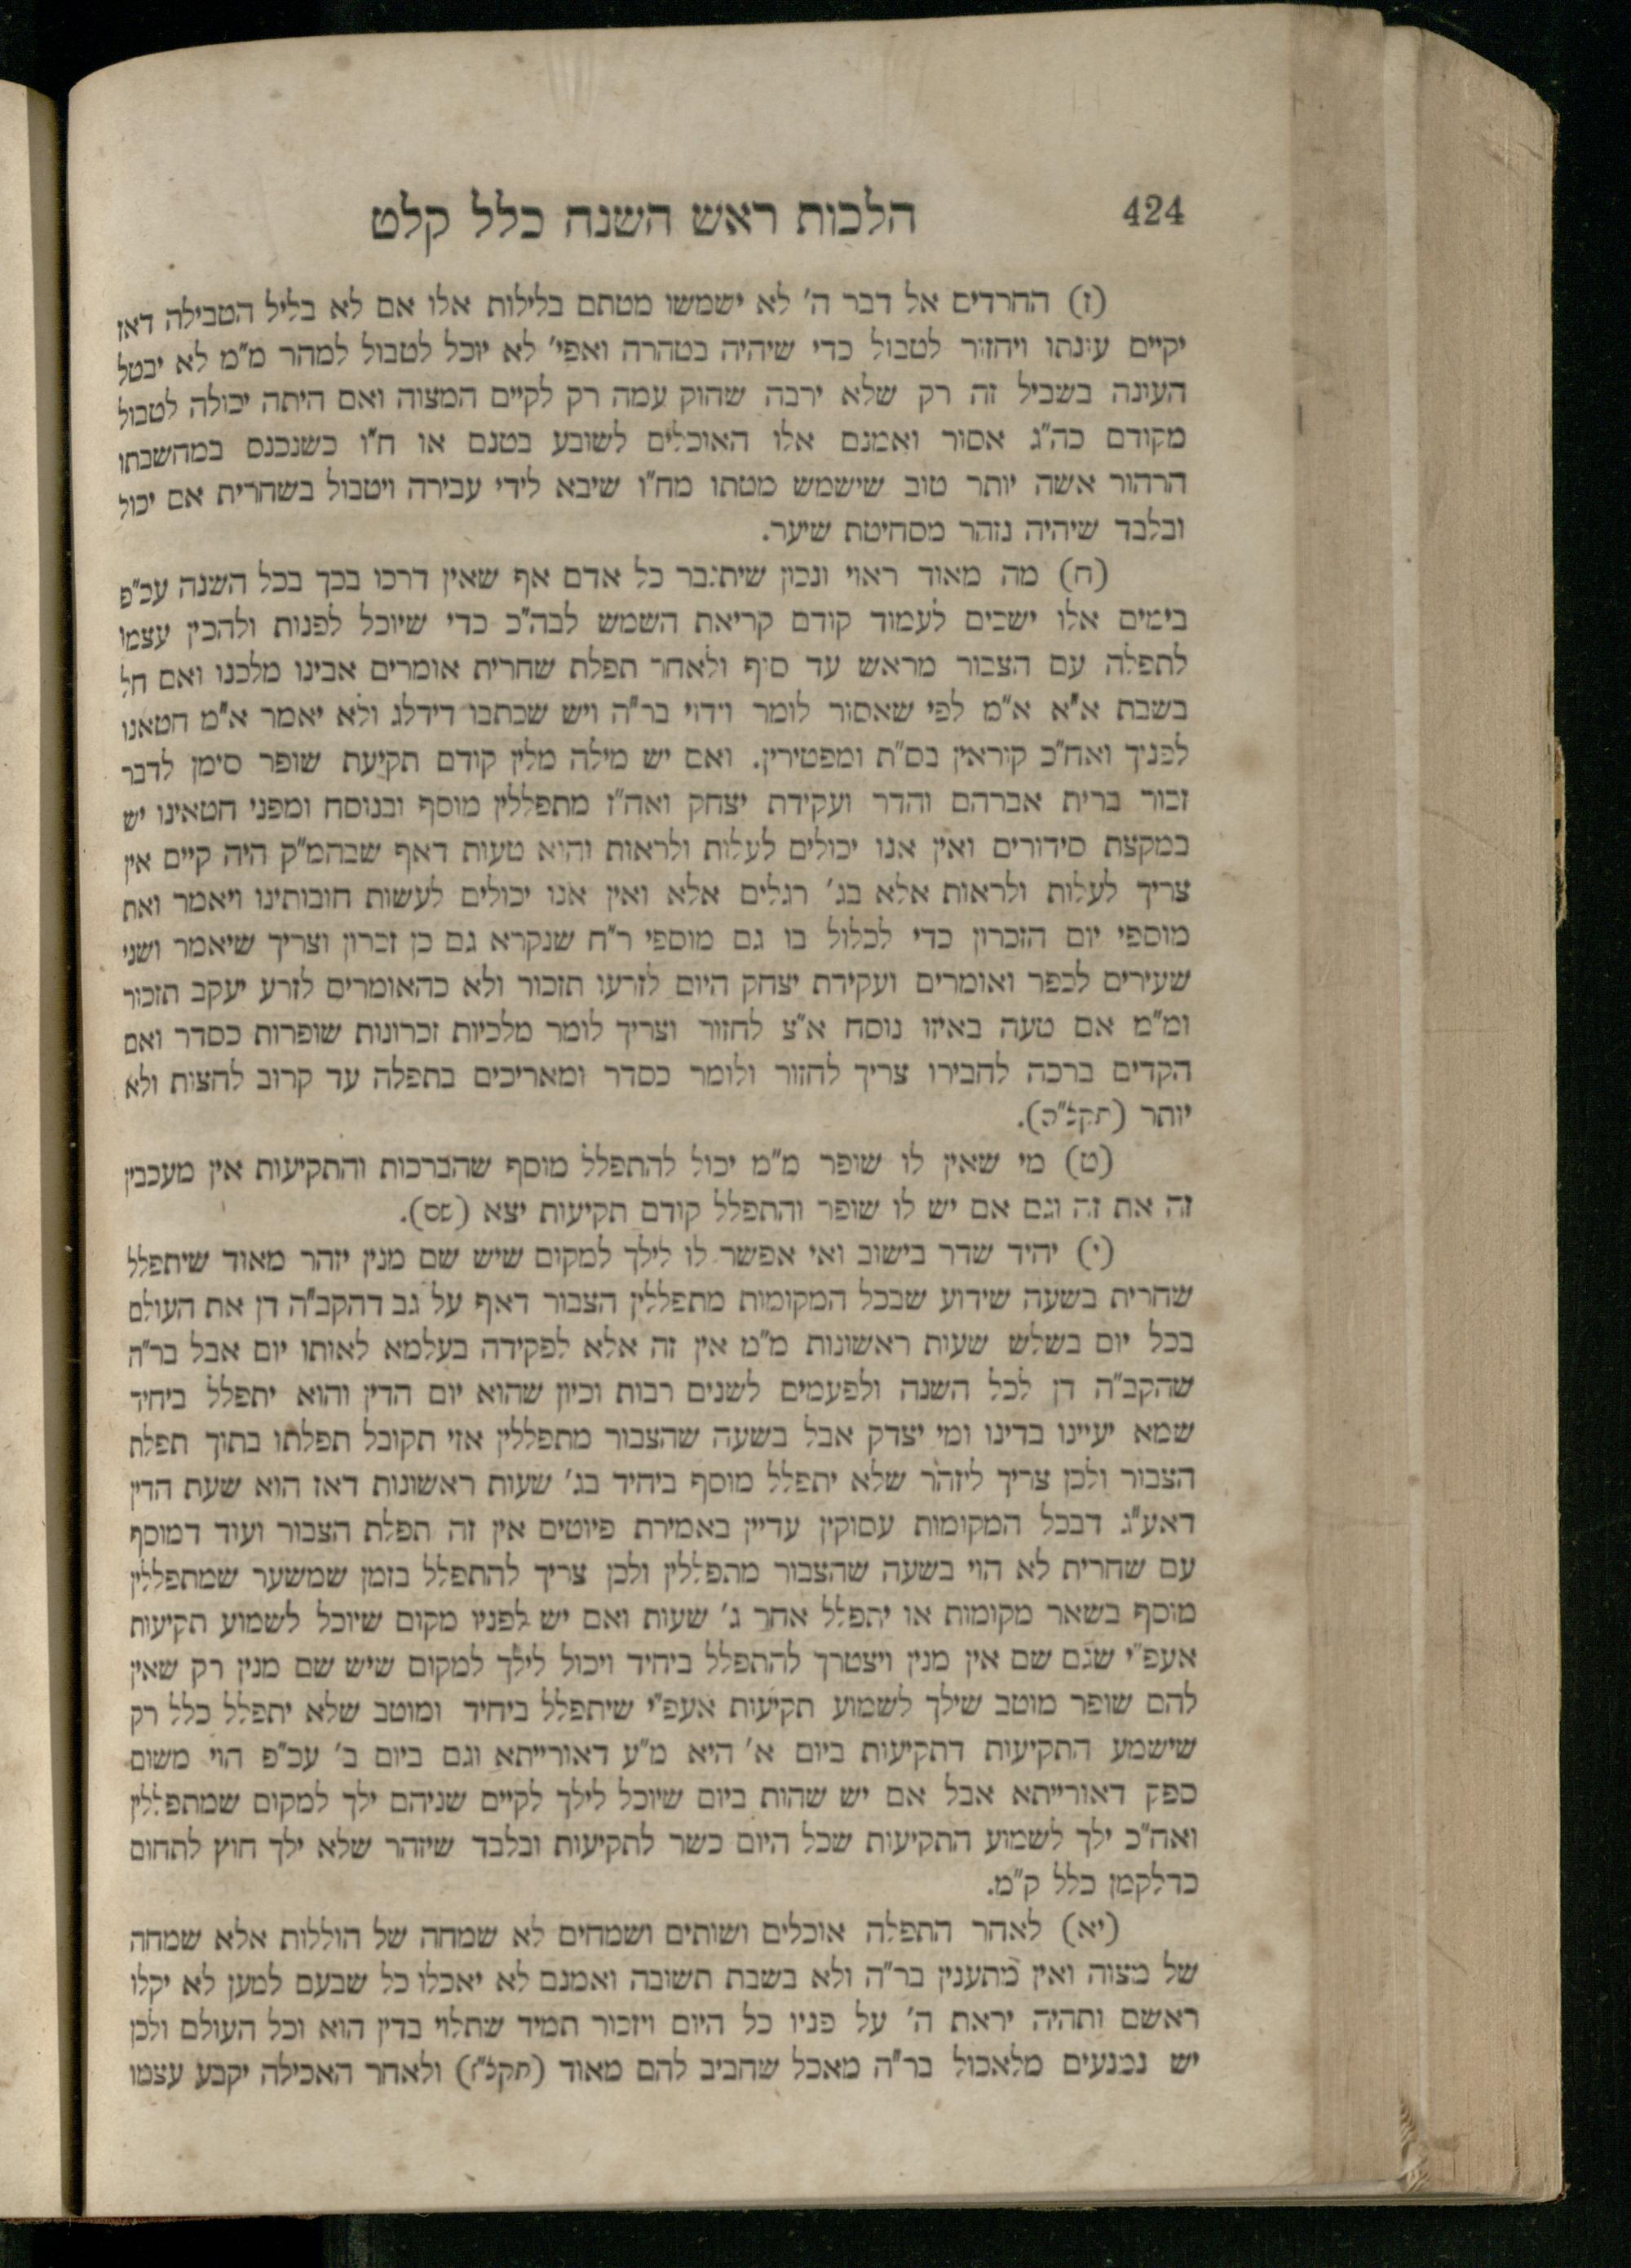 424
הלכות ראש השנה כלל קלט
(ז) החרדים אל דבר ה׳ לא ישמשו מטתם בלילות אלו אם לא בליל הטבילה דאז
יקיים עונתו ויחזור לטבול כדי שיהיה בטהרה ואפי׳ לא יוכל לטבול למחר מ״מ לא יבטל
העונה בשביל זה רק שלא ירבה שחוק עמה רק לקיים המצוה ואם היתה יכולה לטבול
מקודם כה״ג אסור ואמנם אלו האוכלים לשובע בטנם או ח״ו כשנכנס במחשבתו
הרהור אשה יותר טוב שישמש מטתו מח״ו שיבא לידי עבירה ויטבול בשחרית אם יכול
ובלבד שיהיה נזהר מסחיטת שיער.
(ח) מה מאוד ראוי ונכון שיתגבר כל אדם אף שאין דרכו בכך בכל השנה עכ״פ
בימים אלו ישכים לעמוד קודם קריאת השמש לבה״כ כדי שיוכל לפנות ולהכין עצמו
לתפלה עם הצבור מראש עד סוף ולאחר תפלת שחרית אומרים אבינו מלכנו ואם חל
בשבת א״א א״מ לפי שאסור לומר וידוי בר״ה ויש שכתבו דידלג ולא יאמר א״מ חטאנו
לפניך ואח״כ קוראין בס״ת ומפטירין. ואם יש מילה מלין קודם תקיעת שופר סימן לדבר
זכור ברית אברהם והדר ועקידת יצחק ואח״ז מתפללין מוסף ובנוסח ומפני חטאינו יש
במקצת סידורים ואין אנו יכולים לעלות ולראות והוא טעות דאף שבהמ״ק היה קיים אין
צריך לעלות ולראות אלא בג׳ רגלים אלא ואין אנו יכולים לעשות חובותינו ויאמר ואת
מוספי יום הזכרון כדי לכלול בו גם מוספי ר״ח שנקרא גם כן זכרון וצריך שיאמר ושני
שעירים לכפר ואומרים ועקידת יצחק היום לזרעו תזכור ולא כהאומרים לזרע יעקב תזכור
ומ״מ אם טעה באיזו נוסח א״צ לחזור וצריך לומר מלכיות זכרונות שופרות כסדר ואם
הקדים ברכה לחבירו צריך לחזור ולומר כסדר ומאריכים בתפלה עד קרוב לחצות ולא
יותר
(ט) מי שאין לו שופר מ״מ יכול להתפלל מוסף שהברכות והתקיעות אין מעכבין
זה את זה וגם אם יש לו שופר והתפלל קודם תקיעות יצא (שם).
(י) יחיד שדר בישוב ואי אפשר לו לילך למקום שיש שם מנין יזהר מאוד שיתפלל
שחרית בשעה שידוע שבכל המקומות מתפללין הצבור דאף על גב דהקב״ה דן את העולם
בכל יום בשלש שעות ראשונות מ״מ אין זה אלא לפקידה בעלמא לאותו יום אבל בר״ה
שהקב״ה דן לכל השנה ולפעמים לשנים רבות וכיון שהוא יום הדין והוא יתפלל ביחיד
שמא יעיינו בדינו ומי יצדק אבל בשעה שהצבור מתפללין אזי תקובל תפלתו בתוך תפלת
הצבור ולכן צריך ליזהר שלא יתפלל מוסף ביחיד בג׳ שעות ראשונות דאז הוא שעת הדין
דאע״ג דבכל המקומות עסוקין עדיין באמירת פיוטים אין זה תפלת הצבור ועוד דמוסף
עם שחרית לא הוי בשעה שהצבור מתפללין ולכן צריך להתפלל בזמן שמשער שמתפללין
מוסף בשאר מקומות או יתפלל אחר ג׳ שעות ואם יש לפניו מקום שיוכל לשמוע תקיעות
אעפ״י שגם שם אין מנין ויצטרך להתפלל ביחיד ויכול לילך למקום שיש שם מנין רק שאין
להם שופר מוטב שילך לשמוע תקיעות אעפ״י שיתפלל ביחיד ומוטב שלא יתפלל כלל רק
שישמע התקיעות דתקיעות ביום א׳ היא מ״ע דאורייתא וגם ביום ב׳ עכ״פ הוי משום
ספק דאורייתא אבל אם יש שהות ביום שיוכל לילך לקיים שניהם ילך למקום שמתפללין
ואח״כ ילך לשמוע התקיעות שכל היום כשר לתקיעות ובלבד שיזהר שלא ילך חוץ לתחום
כדלקמן כלל ק״מ.
(יא) לאחר התפלה אוכלים ושותים ושמחים לא שמחה של הוללות אלא שמחה
של מצוה ואין מתענין בר״ה ולא בשבת תשובה ואמנם לא יאכלו כל שבעם למען לא יקלו
ראשם ותהיה יראת ה׳ על פניו כל היום ויזכור תמיד שתלוי בדין הוא וכל העולם ולכן
יש נמנעים מלאכול בר״ה מאכל שחביב להם מאוד (תקל״ז) ולאחר האכילה יקבע עצמו